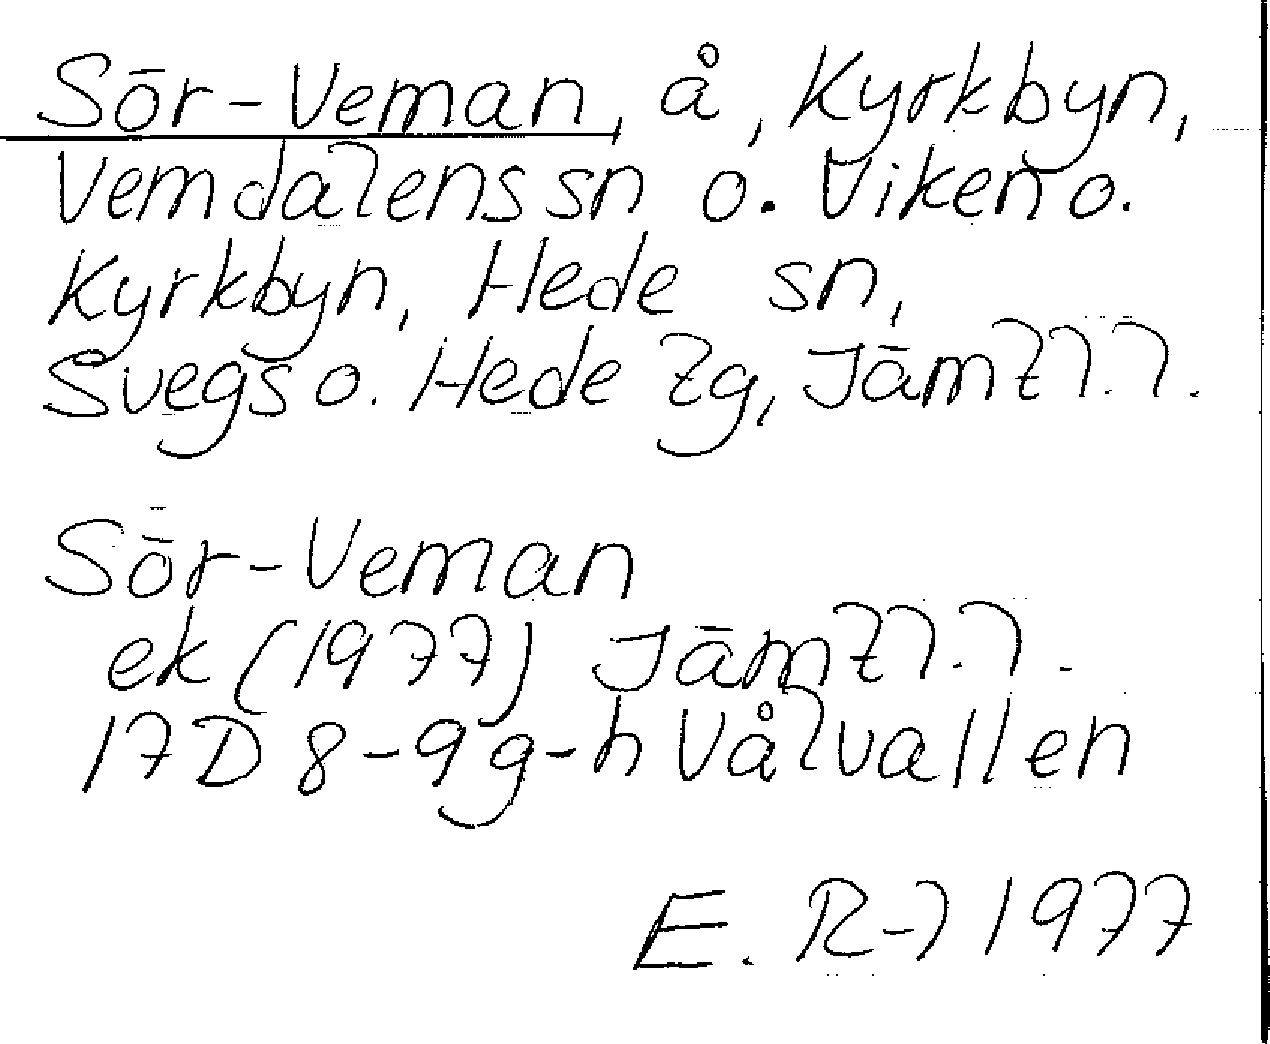 Sör-Veman, å, Kyrkbyn,
Vemdalens sn o. Viken o.
Kyrkbyn, Hede sn,
Svegs o. Hede tg, Jämtl.l.
Sör-Veman
ek (1977) Jämtl.l.
17D 8-9g-h Vålvallen
E. R-l 1977